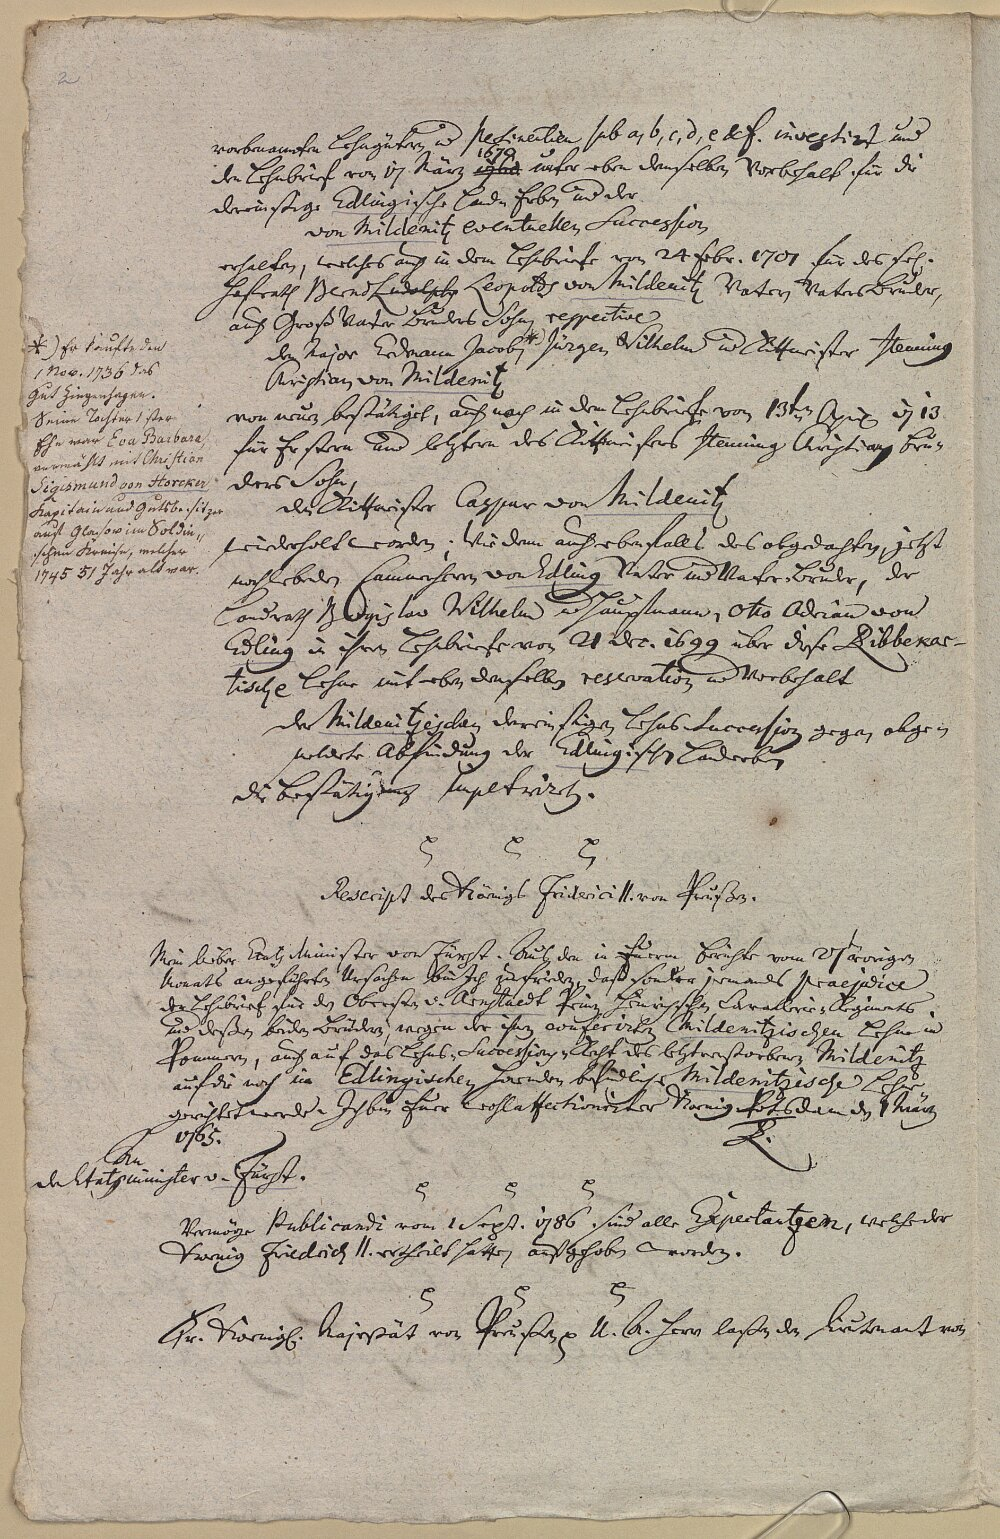 2
vorbenannten Lehngütern und Pertinentien sub a, b, c, d, e & f. investirt und
den Lehnbrief von 17 März 1670 unter eben demselben Vorbehalt für die
dereinstige Edlingische Land Erben und der
von Mildenitz eventuellen Succession
erhalten, welches auch in dem Lehnbriefe von 24 Febr. 1701 für des sel.
Hofrath Bernd Leopolds von Mildenitz Vaters Vaters Bruder,
auch Groß Vater Bruders Sohn respective
den Major Erdmann Jacob *) Jürgen Wilhelm und Rittmeister Henning
Christian von Mildenitz
von neuen bestätiget, auch noch in dem Lehnbriefe vom 13ten 1713
für Erstern und letztern des Rittmeisters Henning Christian Bru-
ders Sohn,
den Rittmeister Caspar von Mildenitz
wiederholt worden; wie denn auch ebenfalls des obgedachten, jetzt
noch lebenden Cammerherrn von Edling Vater und Vater-Bruder, der
Landrath Bogislav Wilhelm und Hauptmann, Otto Adrian von
Edling in ihren Lehnbriefe von 21 Dec. 1699 über diese Ribbekar-
tische Lehne mit eben derselben reservation und Vorbehalt
der Mildenitzischen dereinstigen Lehns-Succession gegen abge-
meldete Abfindung der Edlingischen Landerben
die Bestätigung impetrirt.
*) Er kaufte den
1 Nov. 1736 das
Gut Ziezenhagen.
Seine Tochter 1ster
Ehe war Eva Barbara,
vermählt mit Christian
Sigismund von Horcker
Kapitain und Gutsbesitzer
auf Glasow im Soldin-
schen Kreise, welcher
1745 51 Jahr alt war.
Rescript des Königs Friderici II. von Preußen.
Mein lieber Etats Minister von Fürst. Aus den in Euerm Berichte vom 27 vorigen
Monats angeführten Ursachen bin Ich zufrieden, daß sonder jemands praejudice
der Lehnbrief für den Obersten v. Arnstaedt Prinz Heinrichschen Cavallerie-Regiments,
und deßen beiden Brüder, wegen der ihm conferirten Mildenitzischen Lehne in
Pommern, auch auf das Lehns-Successions-Recht des letztverstorbenen Mildenitz
auf die noch in Edlingischen Händen befindliche Mildenitzische Lehne
gerichtet werde. Ich bin Euer wohlaffectionirter Koenig Potsdam den 1 März
1765.
F.
An
den Etatsminister v. Fürst.
Vermöge Publicandi vom 1 Sept. 1786 sind alle Expectantzen, welche der
Koenig Friedrich II. ertheilt hatte, aufgehoben worden.
Sr. Koenigl. Majestät von Preußen U. A. Herr laßen den Lieutenant von